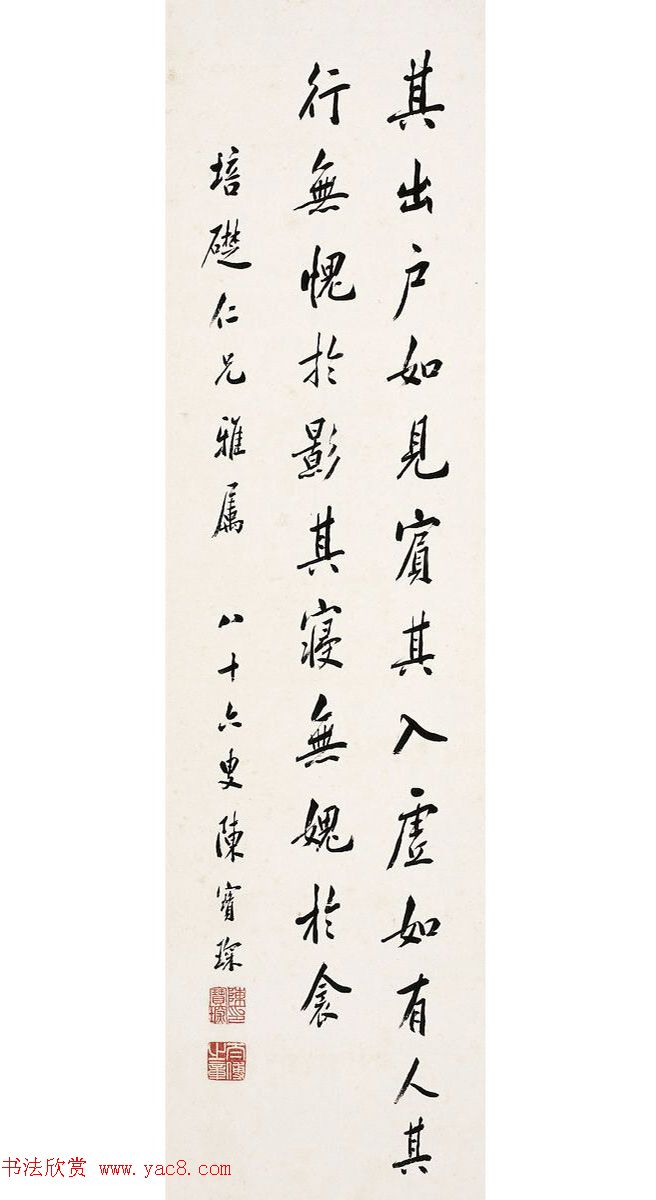 其出户如見賓其入虛如有人其
行無愧於影其寢無媿於衾
培礎仁兄雅属 八十六叟陳寶琛
陳印寶琛
太傅之章
书法欣赏 www.yac8.com